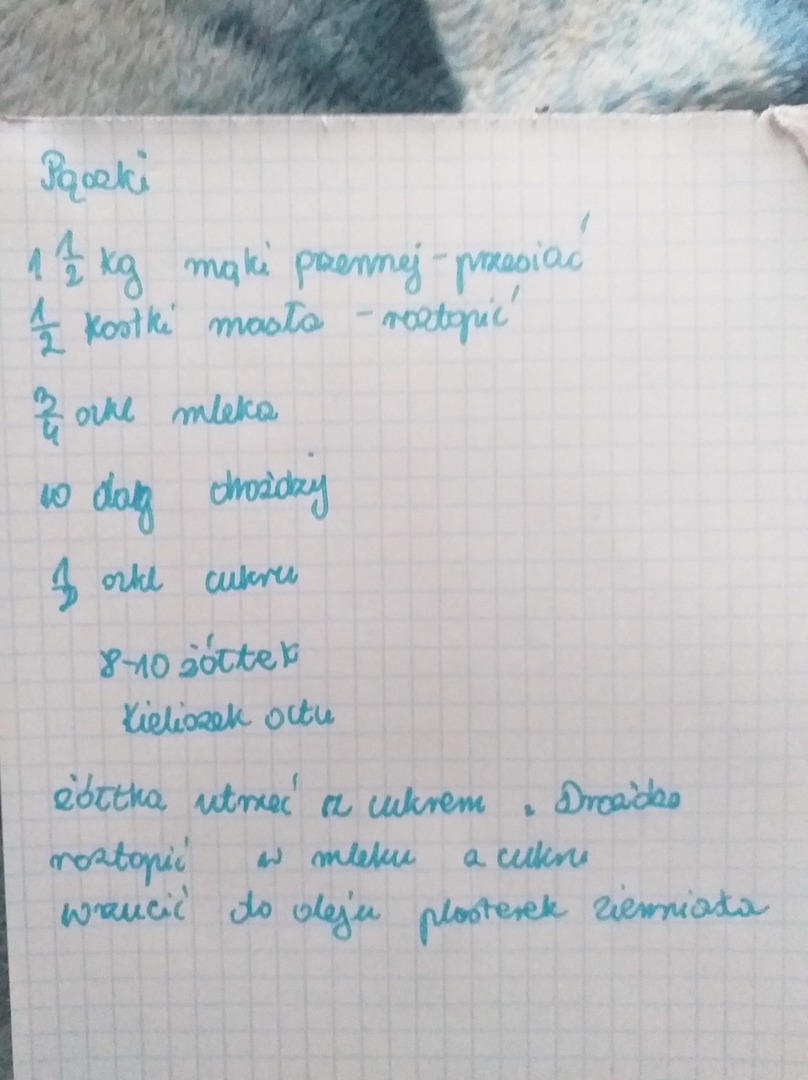 Pączki
1 1/2 kg mąki pszennej - przesiać
1/2 kostki masła - roztopić
3/4 szkl mleka
10 dag drożdży
1/2 szkl cukru
8-10 żółtek
Kieliszek octu
żółtka utrzeć z cukrem. Drożdże
roztopić w mleku z cukru
wrzucić do oleju plasterek ziemniaka